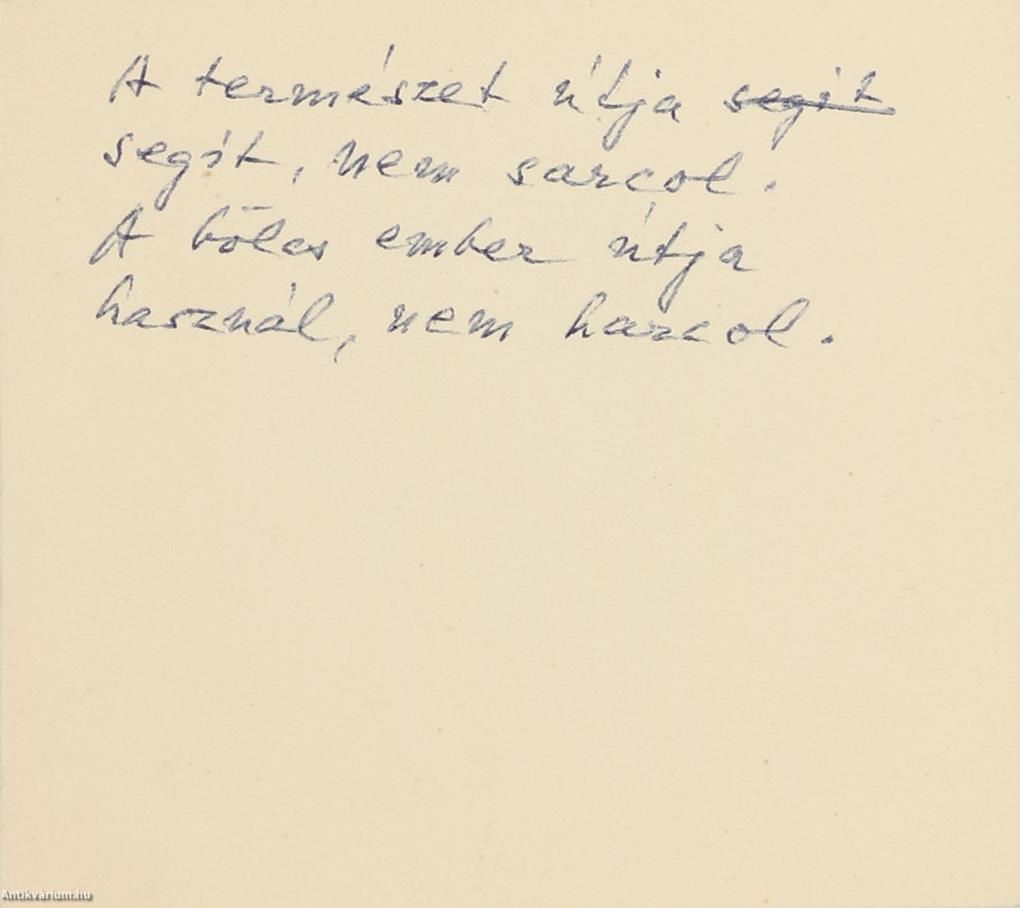 A természet útja ~~segít~~
segít, nem sarcol.
A bölcs ember útja
használ, nem harcol.
Antikvárium.hu